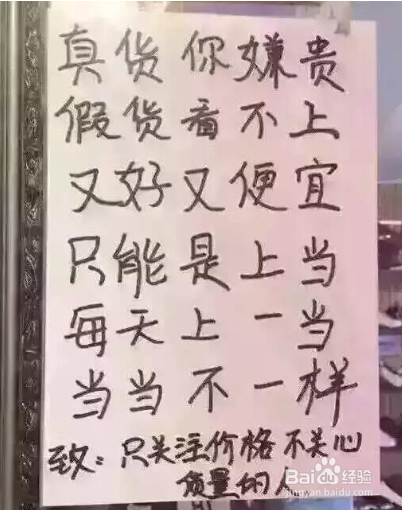 真货你嫌贵
假货看不上
又好又便宜
只能是上当
每天上一当
当当不一样
致：只关注价格不关心
质量的人
Baidu经验
jingyan.baidu.com